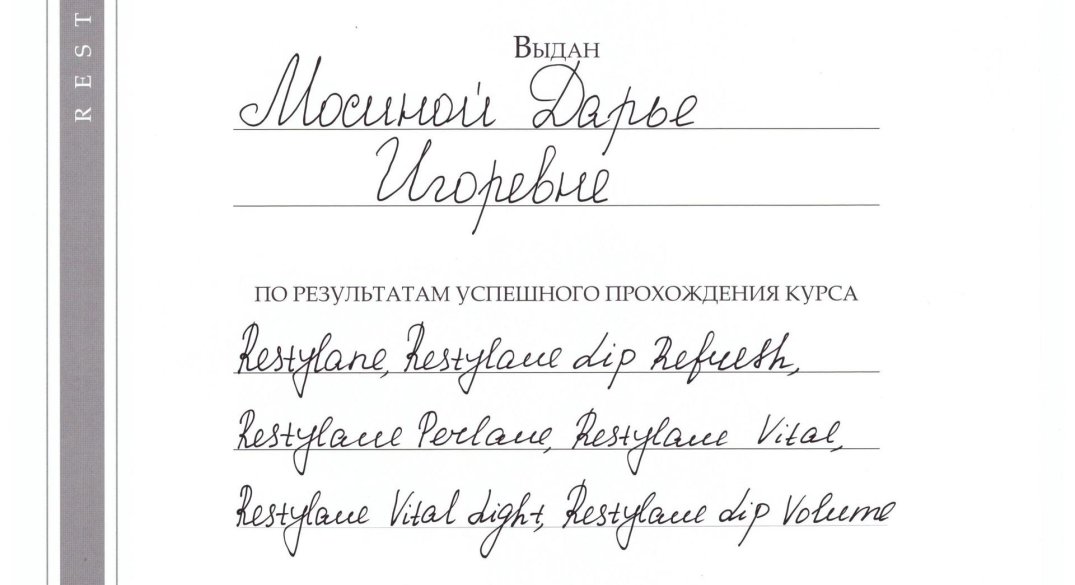 REST
Выдан
Мосиной Дарье
Игоревне
ПО РЕЗУЛЬТАТАМ УСПЕШНОГО ПРОХОЖДЕНИЯ КУРСА
Restylane, Restylane Lip Refresh,
Restylane Perlane, Restylane Vital,
Restylane Vital Light, Restylane Lip Volume